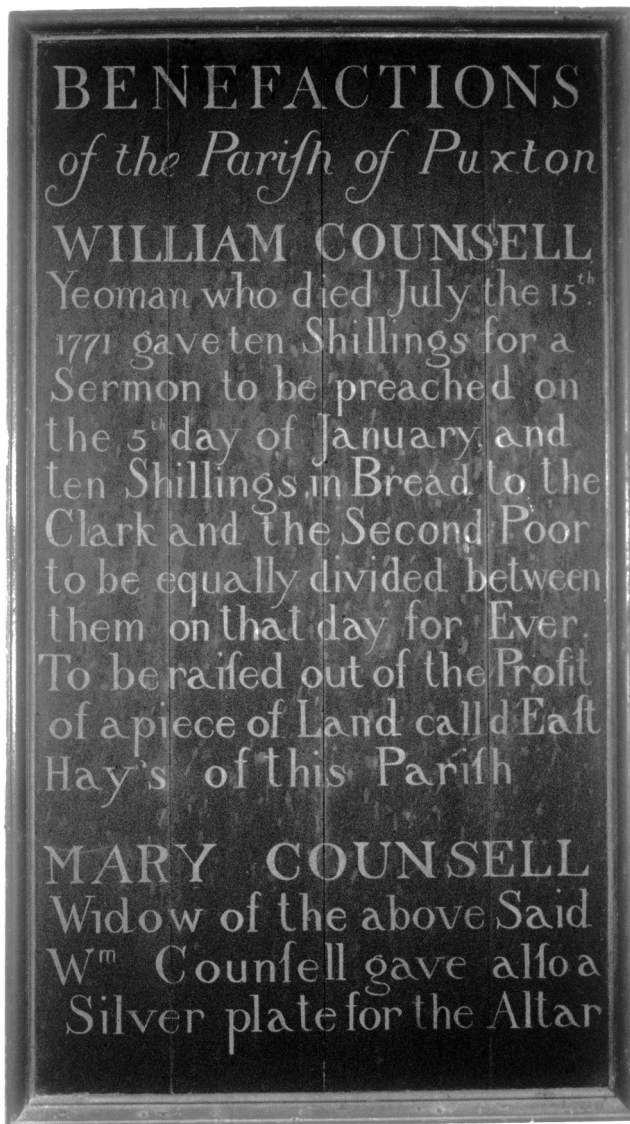 BENEFACTIONS
of the Pariſh of Puxton
WILLIAM COUNSELL
Yeoman who died July the 15th.
1771 gave ten Shillings for a
Sermon to be preached on
the 5th day of January, and
ten Shillings in Bread to the
Clark and the Second Poor
to be equally divided between
them on that day for Ever.
To be raiſed out of the Profit
of a piece of Land call'd Eaſt
Hay's of this Pariſh
MARY COUNSELL
Widow of the above Said
Wm Counſell gave alſo a
Silver plate for the Altar